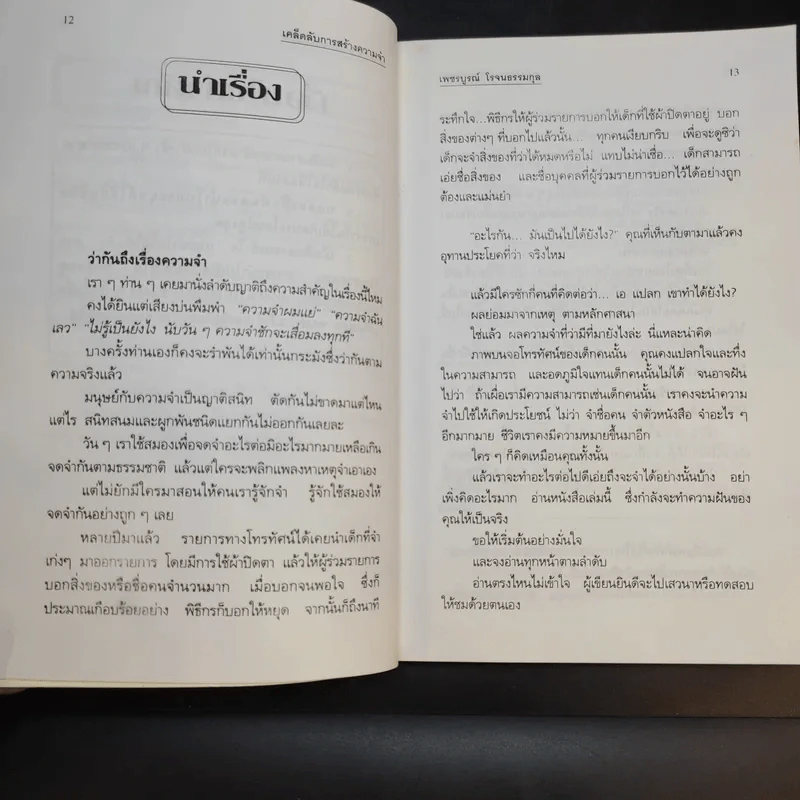 12
เคล็ดลับการสร้างความจำ
นำเรื่อง
ว่ากันถึงเรื่องความจำ
เรา ๆ ท่าน ๆ เคยมานั่งลำดับญาติถึงความสำคัญในเรื่องนี้ไหม
คงได้ยินแต่เสียงบ่นพึมพำ "ความจำผมแย่" "ความจำฉัน
เลว" "ไม่รู้เป็นยังไง นับวัน ๆ ความจำชักจะเสื่อมลงทุกที"
บางครั้งท่านเองก็คงจะรำพันได้เท่านั้นกระมังซึ่งว่ากันตาม
ความจริงแล้ว
มนุษย์กับความจำเป็นญาติสนิท ตัดกันไม่ขาดมาแต่ไหน
แต่ไร สนิทสนมและผูกพันชนิดแยกกันไม่ออกกันเลยละ
วัน ๆ เราใช้สมองเพื่อจดจำอะไรต่อมิอะไรมากมายเหลือเกิน
จดจำกันตามธรรมชาติ แล้วแต่ใครจะพลิกแพลงหาเหตุจำเอาเอง
แต่ไม่ยักมีใครมาสอนให้คนเรารู้จักจำ รู้จักใช้สมองให้
จดจำกันอย่างถูก ๆ เลย
หลายปีมาแล้ว รายการทางโทรทัศน์ได้เคยนำเด็กที่จำ
เก่งๆ มาออกรายการ โดยมีการใช้ผ้าปิดตา แล้วให้ผู้ร่วมรายการ
บอกสิ่งของหรือชื่อคนจำนวนมาก เมื่อบอกจนพอใจ ซึ่งก็
ประมาณเกือบร้อยอย่าง พิธีกรก็บอกให้หยุด จากนั้นก็ถึงนาที
เพชรบูรณ์ โรจนธรรมกุล
13
ระทึกใจ...พิธีกรให้ผู้ร่วมรายการบอกให้เด็กที่ใช้ผ้าปิดตาอยู่ บอก
สิ่งของต่างๆ ที่บอกไปแล้วนั้น... ทุกคนเงียบกริบ เพื่อจะดูซิว่า
เด็กจะจำสิ่งของที่ว่าได้หมดหรือไม่ แทบไม่น่าเชื่อ... เด็กสามารถ
เอ่ยชื่อสิ่งของ และชื่อบุคคลที่ผู้ร่วมรายการบอกไว้ได้อย่างถูก
ต้องและแม่นยำ
"อะไรกัน... มันเป็นไปได้ยังไง?" คุณที่เห็นกับตามาแล้วคง
อุทานประโยคที่ว่า จริงไหม
แล้วมีใครซักกี่คนที่คิดต่อว่า... เอ แปลก เขาทำได้ยังไง?
ผลย่อมมาจากเหตุ ตามหลักศาสนา
ใช่แล้ว ผลความจำที่ว่ามีที่มายังไงล่ะ นี่แหละน่าคิด
ภาพบนจอโทรทัศน์ของเด็กคนนั้น คุณคงแปลกใจและทึ่ง
ในความสามารถ และอดภูมิใจแทนเด็กคนนั้นไม่ได้ จนอาจฝัน
ไปว่า ถ้าเผื่อเรามีความสามารถเช่นเด็กคนนั้น เราคงจะนำความ
จำไปใช้ให้เกิดประโยชน์ ไม่ว่า จำชื่อคน จำตัวหนังสือ จำอะไร ๆ
อีกมากมาย ชีวิตเราคงมีความหมายขึ้นมาอีก
ใคร ๆ ก็คิดเหมือนคุณทั้งนั้น
แล้วเราจะทำอะไรต่อไปดีเอ่ยถึงจะจำได้อย่างนั้นบ้าง อย่า
เพิ่งคิดอะไรมาก อ่านหนังสือเล่มนี้ ซึ่งกำลังจะทำความฝันของ
คุณให้เป็นจริง
ขอให้เริ่มต้นอย่างมั่นใจ
และจงอ่านทุกหน้าตามลำดับ
อ่านตรงไหนไม่เข้าใจ ผู้เขียนยินดีจะไปเสวนาหรือทดสอบ
ให้ชมด้วยตนเอง